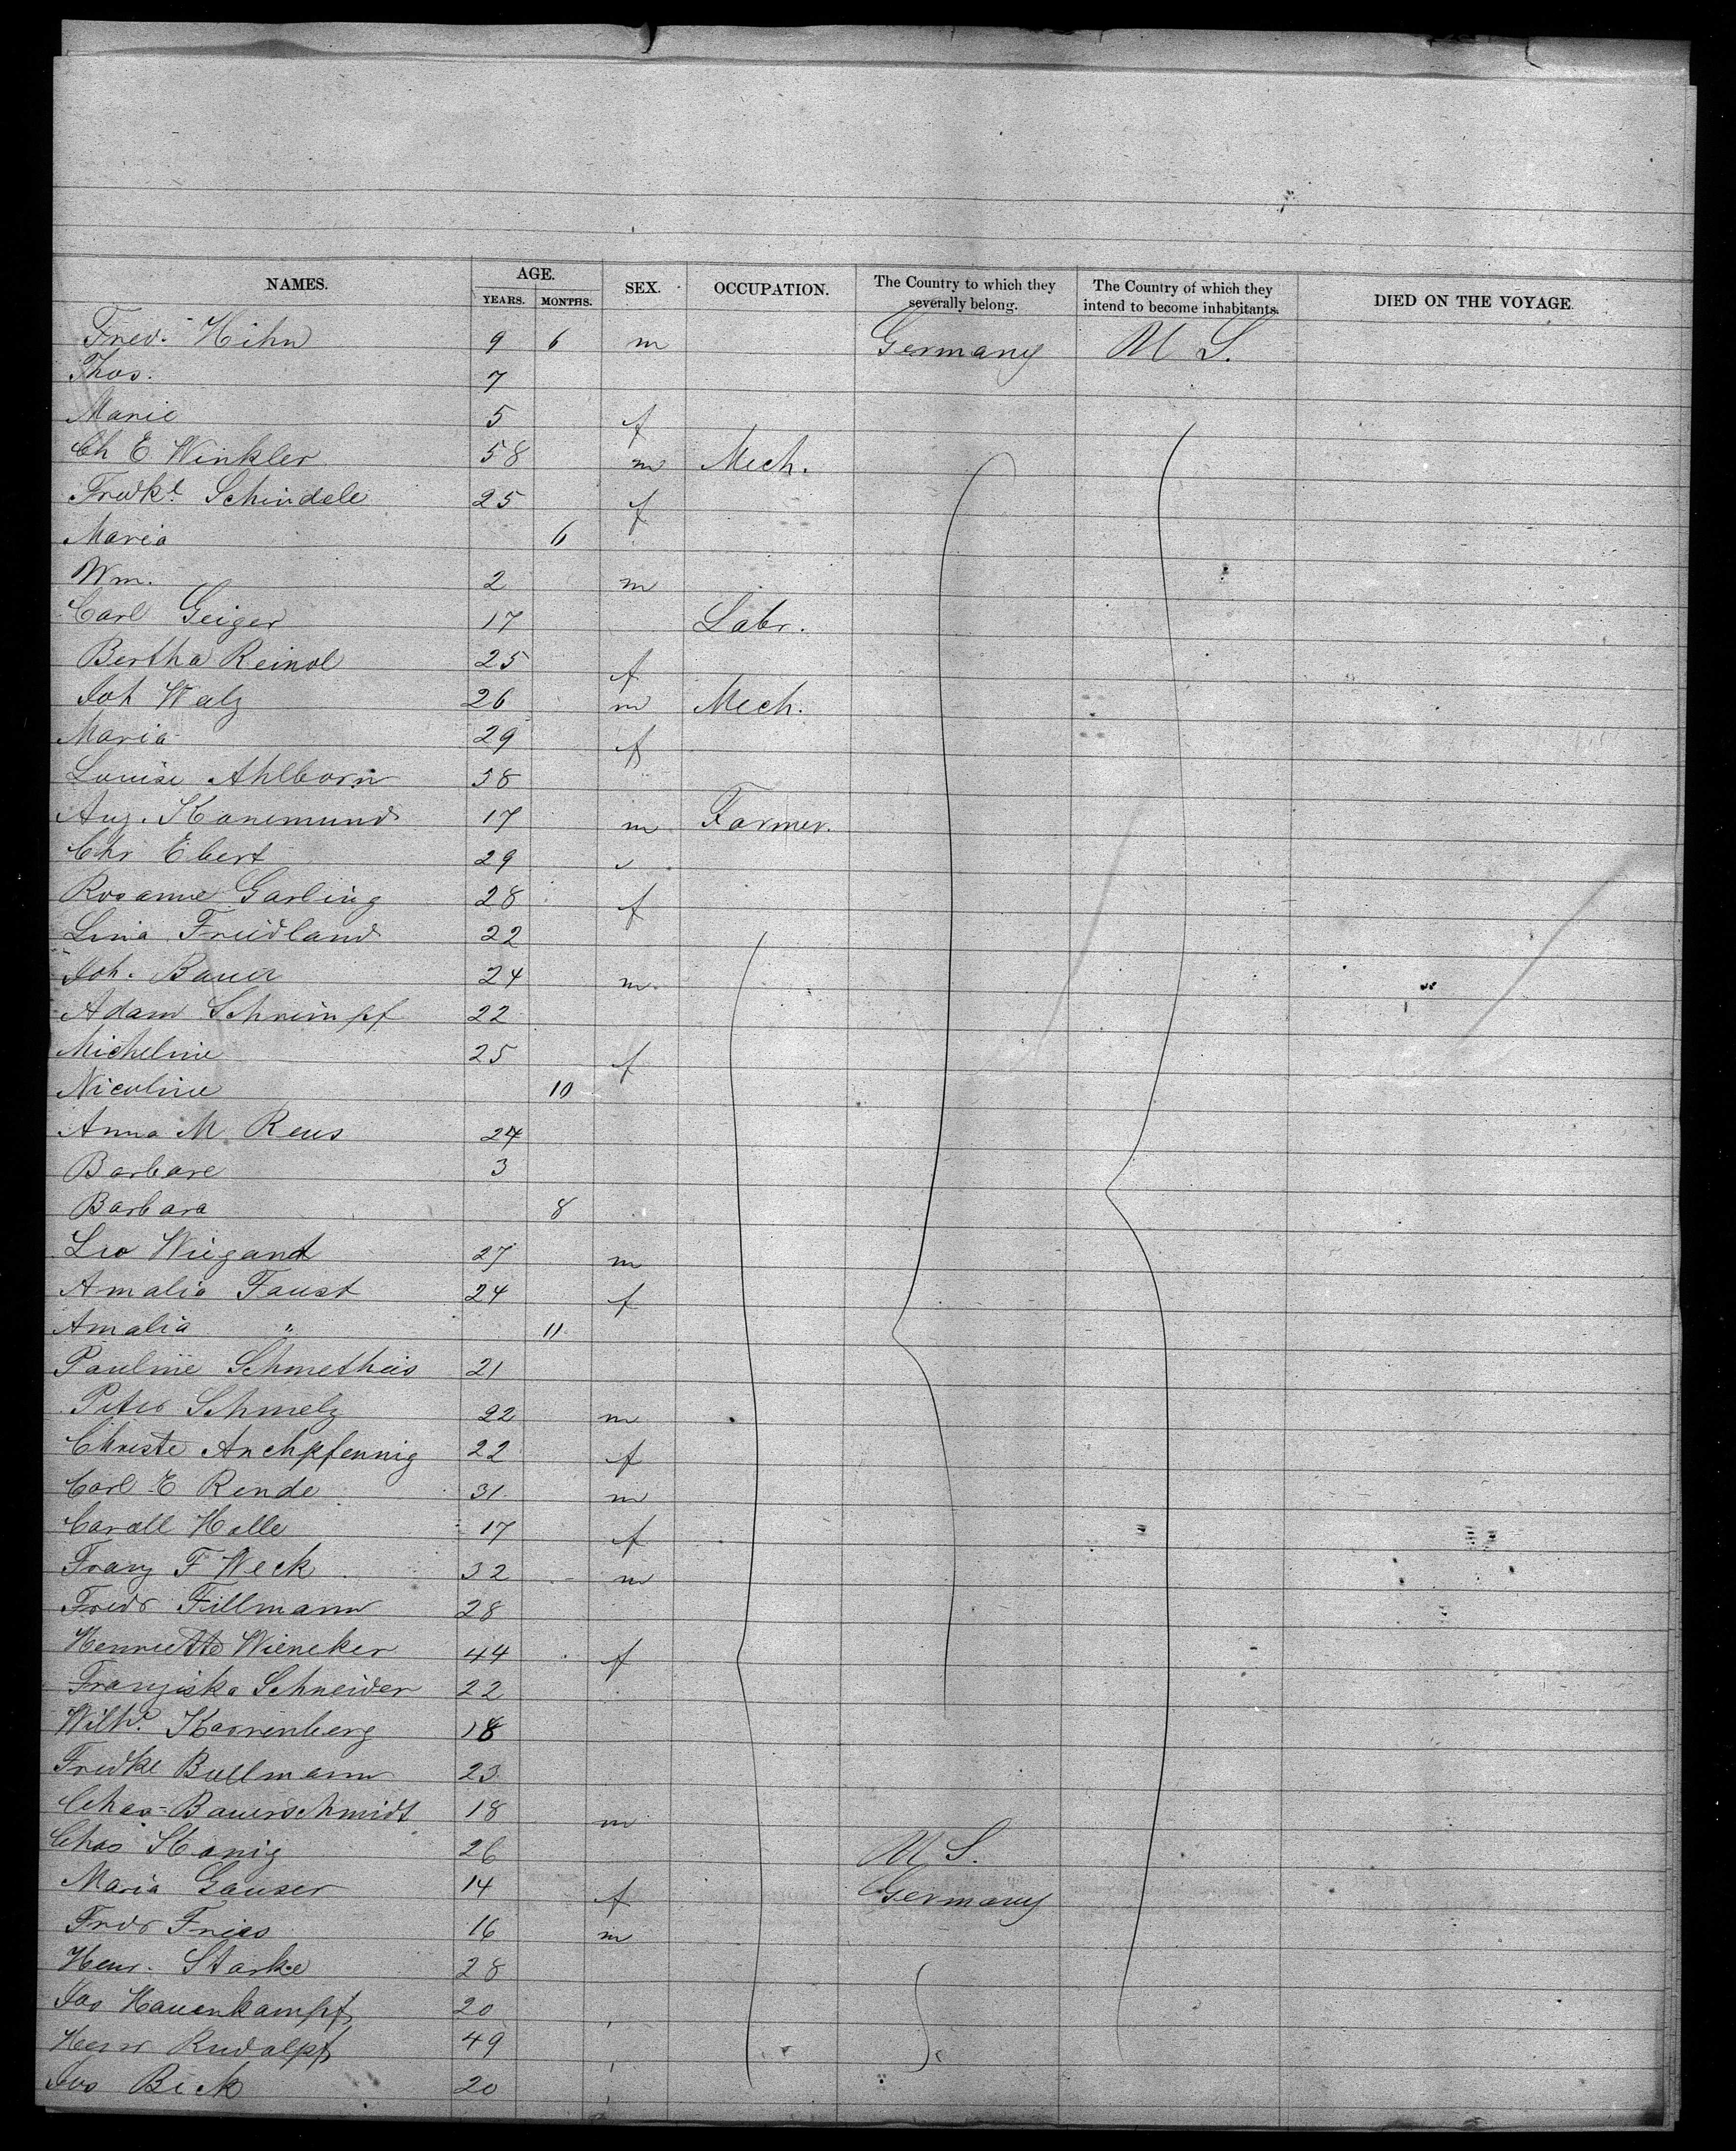 NAMES. AGE. YEARS. MONTHS. SEX. OCCUPATION. The Country to which they severally belong. The Country of which they intend to become inhabitants. DIED ON THE VOYAGE.
Fred. Hihn 9 6 m Germany U S.
Thos. 7
Marie 5 f
Ch E. Winkler 58 m Mech.
Fredke Schindele 25 f
Maria 6
Wm. 2 m
Carl Geiger 17 Labr.
Bertha Reinol 25 f
Joh Walz 26 m Mech.
Maria 29 f
Louise Ahlborn 58
Aug. Kanemund 17 m Farmer.
Chr Ebert 29 "
Rosanne Garling 28 f
Lina Friedland 22
Joh. Bauer 24 m
Adam Schrimpf 22
Micheline 25 f
Nicoline 10
Anna M Reus 24
Barbare 3
Barbara 8
Leo Wiegand 27 m
Amalia Faust 24 f
Amalia " 11
Pauline 21
Peter Schmelz 22 m
Christe 22 f
Carl E Rende 31 m
Halle 17 f
Franz F Weck 32 m
Fredr Fillmann 28
Henriette Wieneker 44 f
Franziska Schneider 22
Wilhe Karrenberg 18
Fredke Bullmann 23
Chas Bauerschmidt 18 m
Chas Konig 26 U S.
Maria Ganser 14 f Germany
Fredr Fries 16 m
Henr. Starke 28
Jos Hauenkampf 20
Rudolph 49
Jos Bick 20